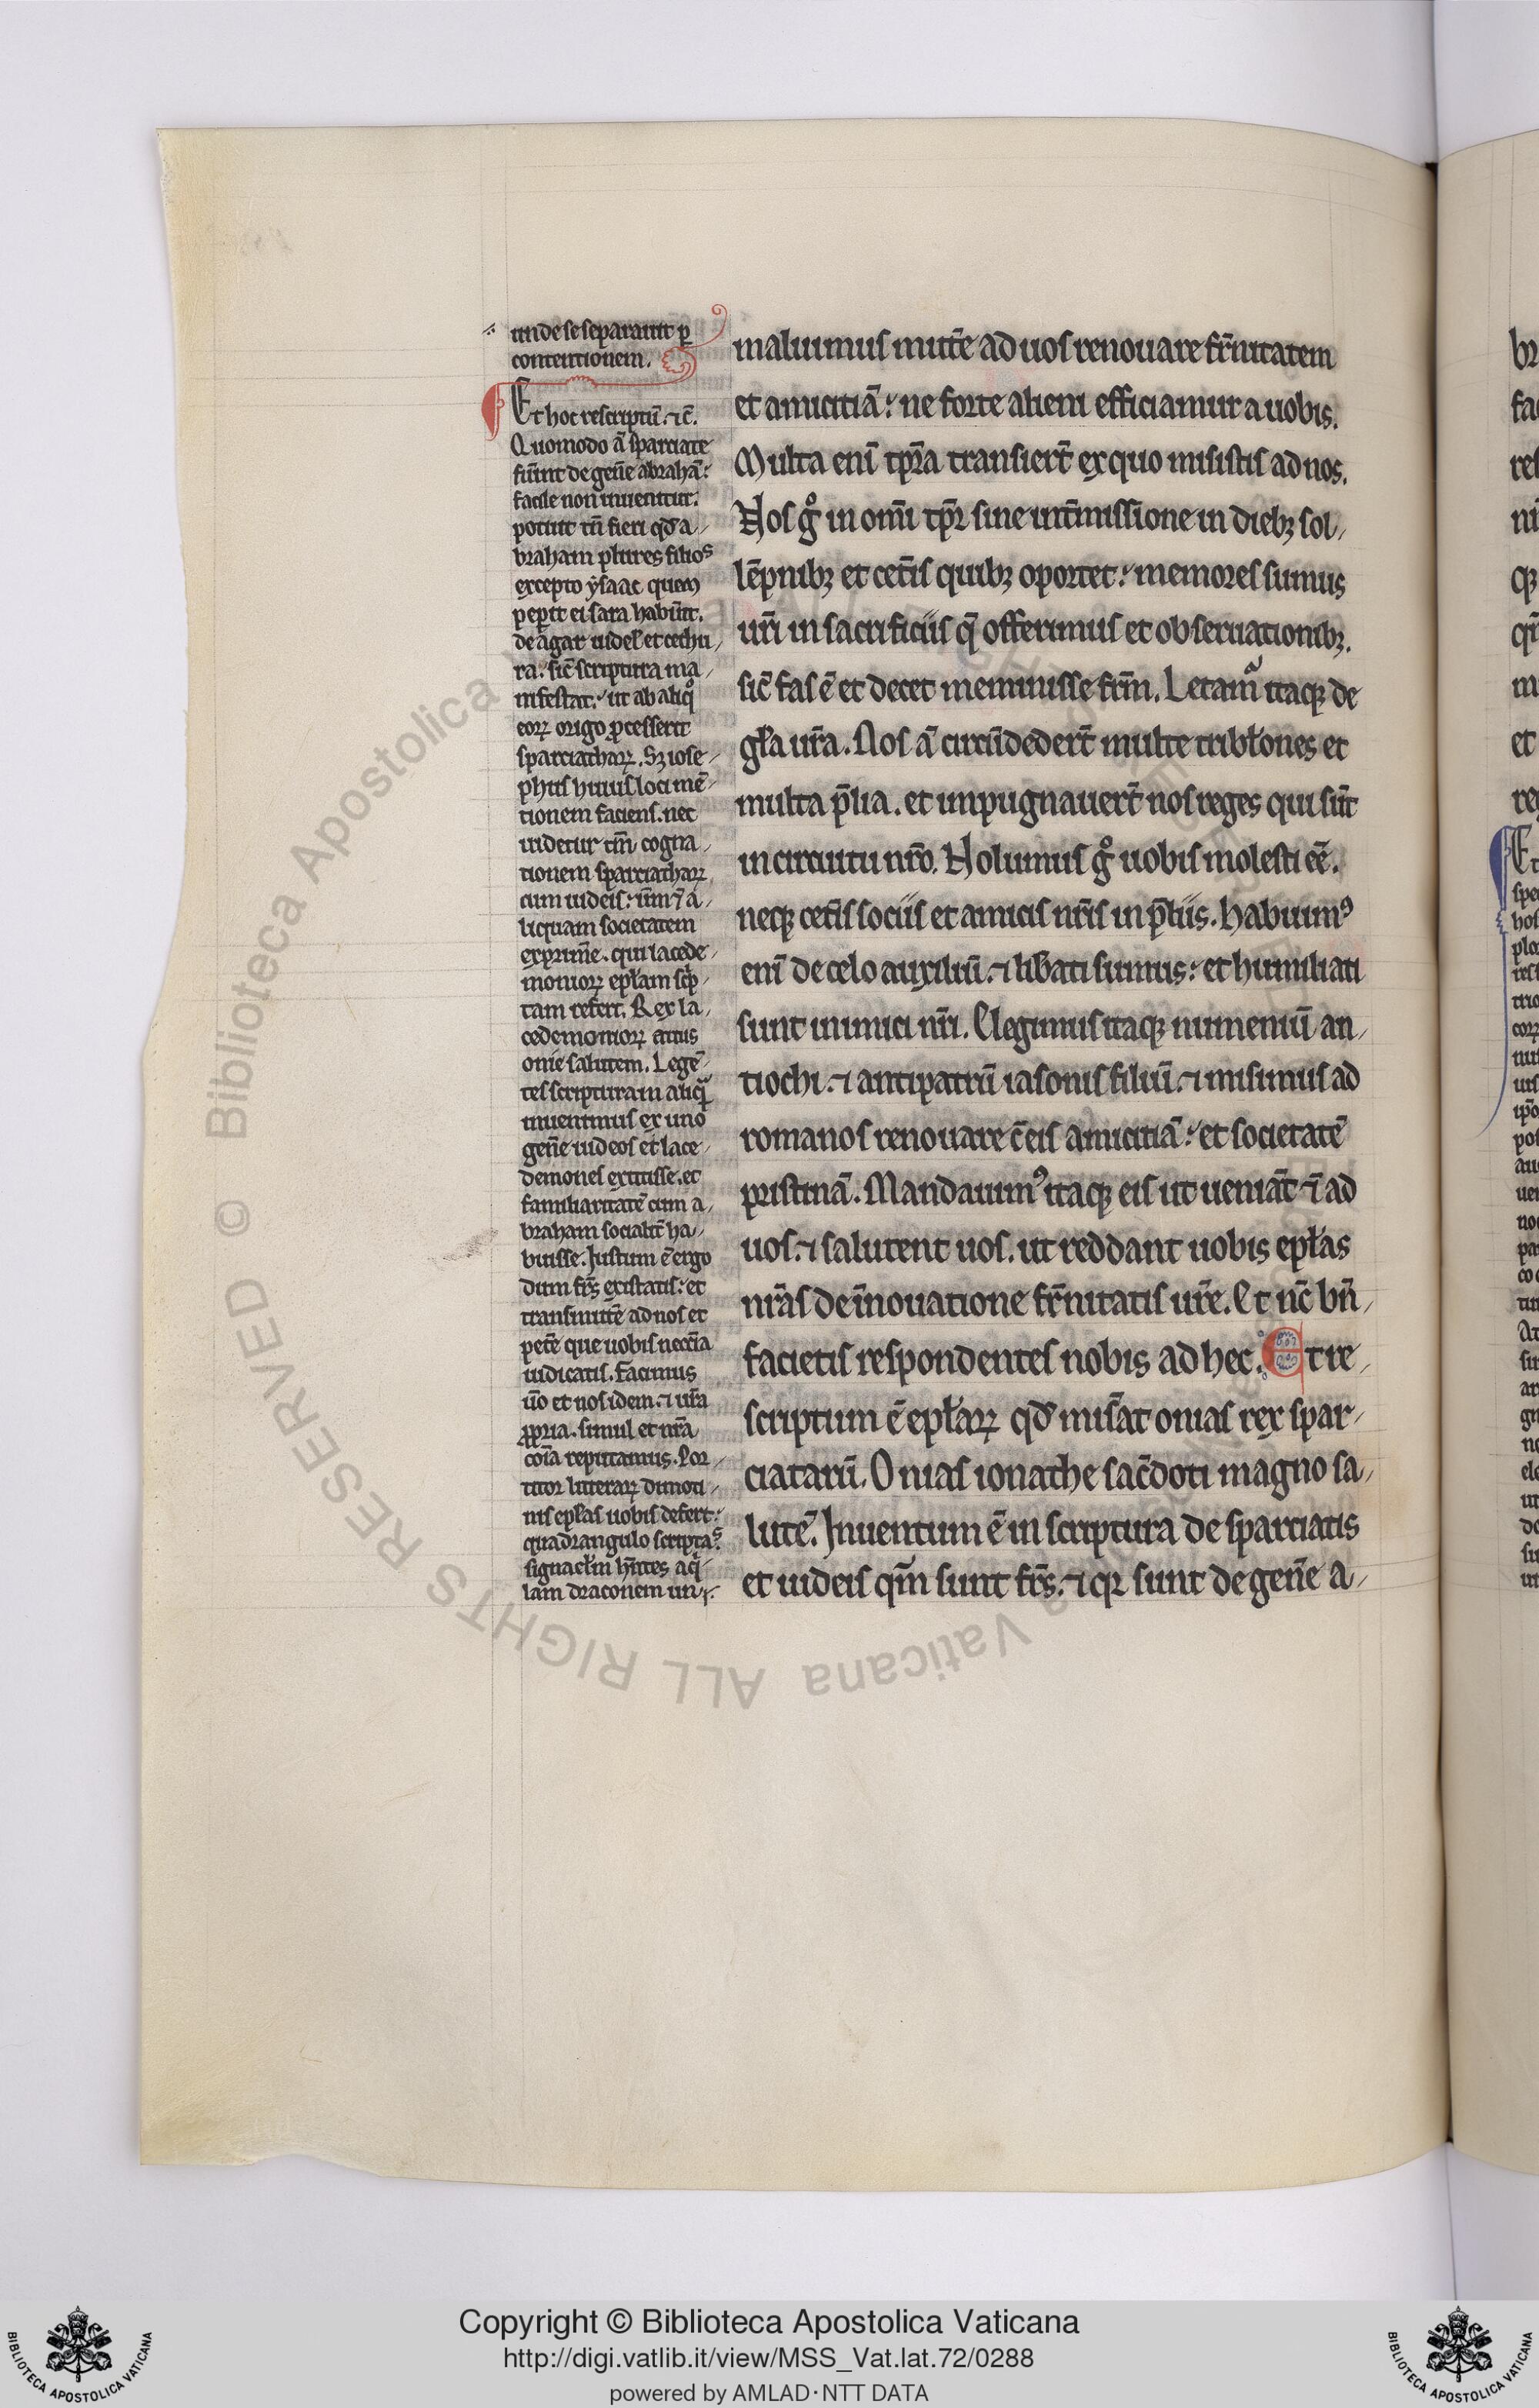 unde se separauit ꝑ
contentionem.
Et hoc rescriptū. ⁊ c̄.
Quomodo ā sparciate
fūint de geñe abrahā:
facile non inuenitur.
potuit tñ fieri qđ a
braham plures filios
excepto ysaac quem
peꝑit ei sara habūit.
de agar uidel' et cethu
ra: sic̄ scriptura ma
nifestat: ut ab aliqͦ
eoꝝ origo ꝓcesserit
sparciathaꝝ. Sꝫ iose
phus huius loci mē
tionem faciens. nec
uidetur tm̄ cogna
tionem sparciathaꝝ
cum iudeis: um̄ ⁊ a
liquam societatem
exprim̄e. qui lacede
monioꝝ epłam sc̄p
tam refert. Rex la
cedemonioꝝ arius
onie salutem. Legē
tes scripturam aliqͣ
inuenimus ex uno
geñe iudeos et lace
demones extitisse. et
familiaritatē cum a
braham socialit̄ ha
buisse. Iustum ē ergo
dum fr̄s existatis: et
transmitt̄e ad nos et
pet̄e que uobis neccīa
iudicatis. Facimus
ūo et nos idem. ⁊ ur̄a
ꝓpria. simul et nr̄a
coīa reputamus. Por
titor litteraꝝ dimoti
nis epłas uobis defert:
quadrangulo scriptas.
signacłm hn̄tes aqͥ
lam draconem un
maluimus mitt̄e ad uos renouare fr̄nitatem
et amicitiā: ne forte alieni efficiamur a uobis.
Multa enī tp̄ra transiert̄ ex quo misistis ad nos.
Nos gͦ in om̄i tp̄r sine int̄missione in diebꝫ sol
lēpnibꝫ et cet̄is quibꝫ oportet: memores sumus
ur̄i in sacrificiis q̄ offerimus et obseruationibꝫ.
sic̄ fas ē et decet meminisse fr̄m. Letamͬ itaqꝫ de
gła ur̄a. Nos ā circūdedert̄ multe tribłones et
multa p̄lia. et inpugnauert̄ nos reges qui sūt
in circuitu nr̄o. Nolumus gͦ uobis molesti eē.
neqꝫ cet̄is sociis et amicis nr̄is in p̄liis. habuimꝰ
enī de celo auxiliū. ⁊ lib̄ati sumus: et humiliati
sunt inimici nr̄i. Elegimus itaqꝫ numeniū an
tiochi. ⁊ antipatrū iasonis filiū. ⁊ misimus ad
romanos renouare c̄ eis amicitiā: et societatē
pristinā. Mandauimꝰ itaqꝫ eis ut ueniāt ⁊ ad
uos. ⁊ salutent uos. ut reddant uobis epłas
nr̄as de īnouatione fr̄nitatis ur̄e. Et nc̄ bn̄
facietis respondentes nobis ad hec. Et re
scriptum ē epłaꝝ qđ mis̄at onias rex spar
ciatarū. Onias ionathe sac̄doti magno sa
lutē. Inuentum ē in scriptura de sparciatis
et iudeis qm̄ sunt fr̄s. ⁊ qꝛ sunt de geñe a
Copyright © Biblioteca Apostolica Vaticana
http://digi.vatlib.it/view/MSS_Vat.lat.72/0288
powered by AMLAD·NTT DATA
BIBLIOTECA APOSTOLICA VATICANA
BIBLIOTECA APOSTOLICA VATICANA
© Biblioteca Apostolica Vaticana ALL RIGHTS RESERVED